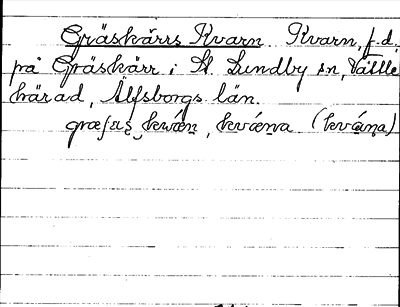 Gräskärrs Kvarn Kvarn, f.d.
på Gräskärr i St. Lundby sn, Vättle
härad, Älfsborgs län.
kwǽn, kvǽna (kvǽna)